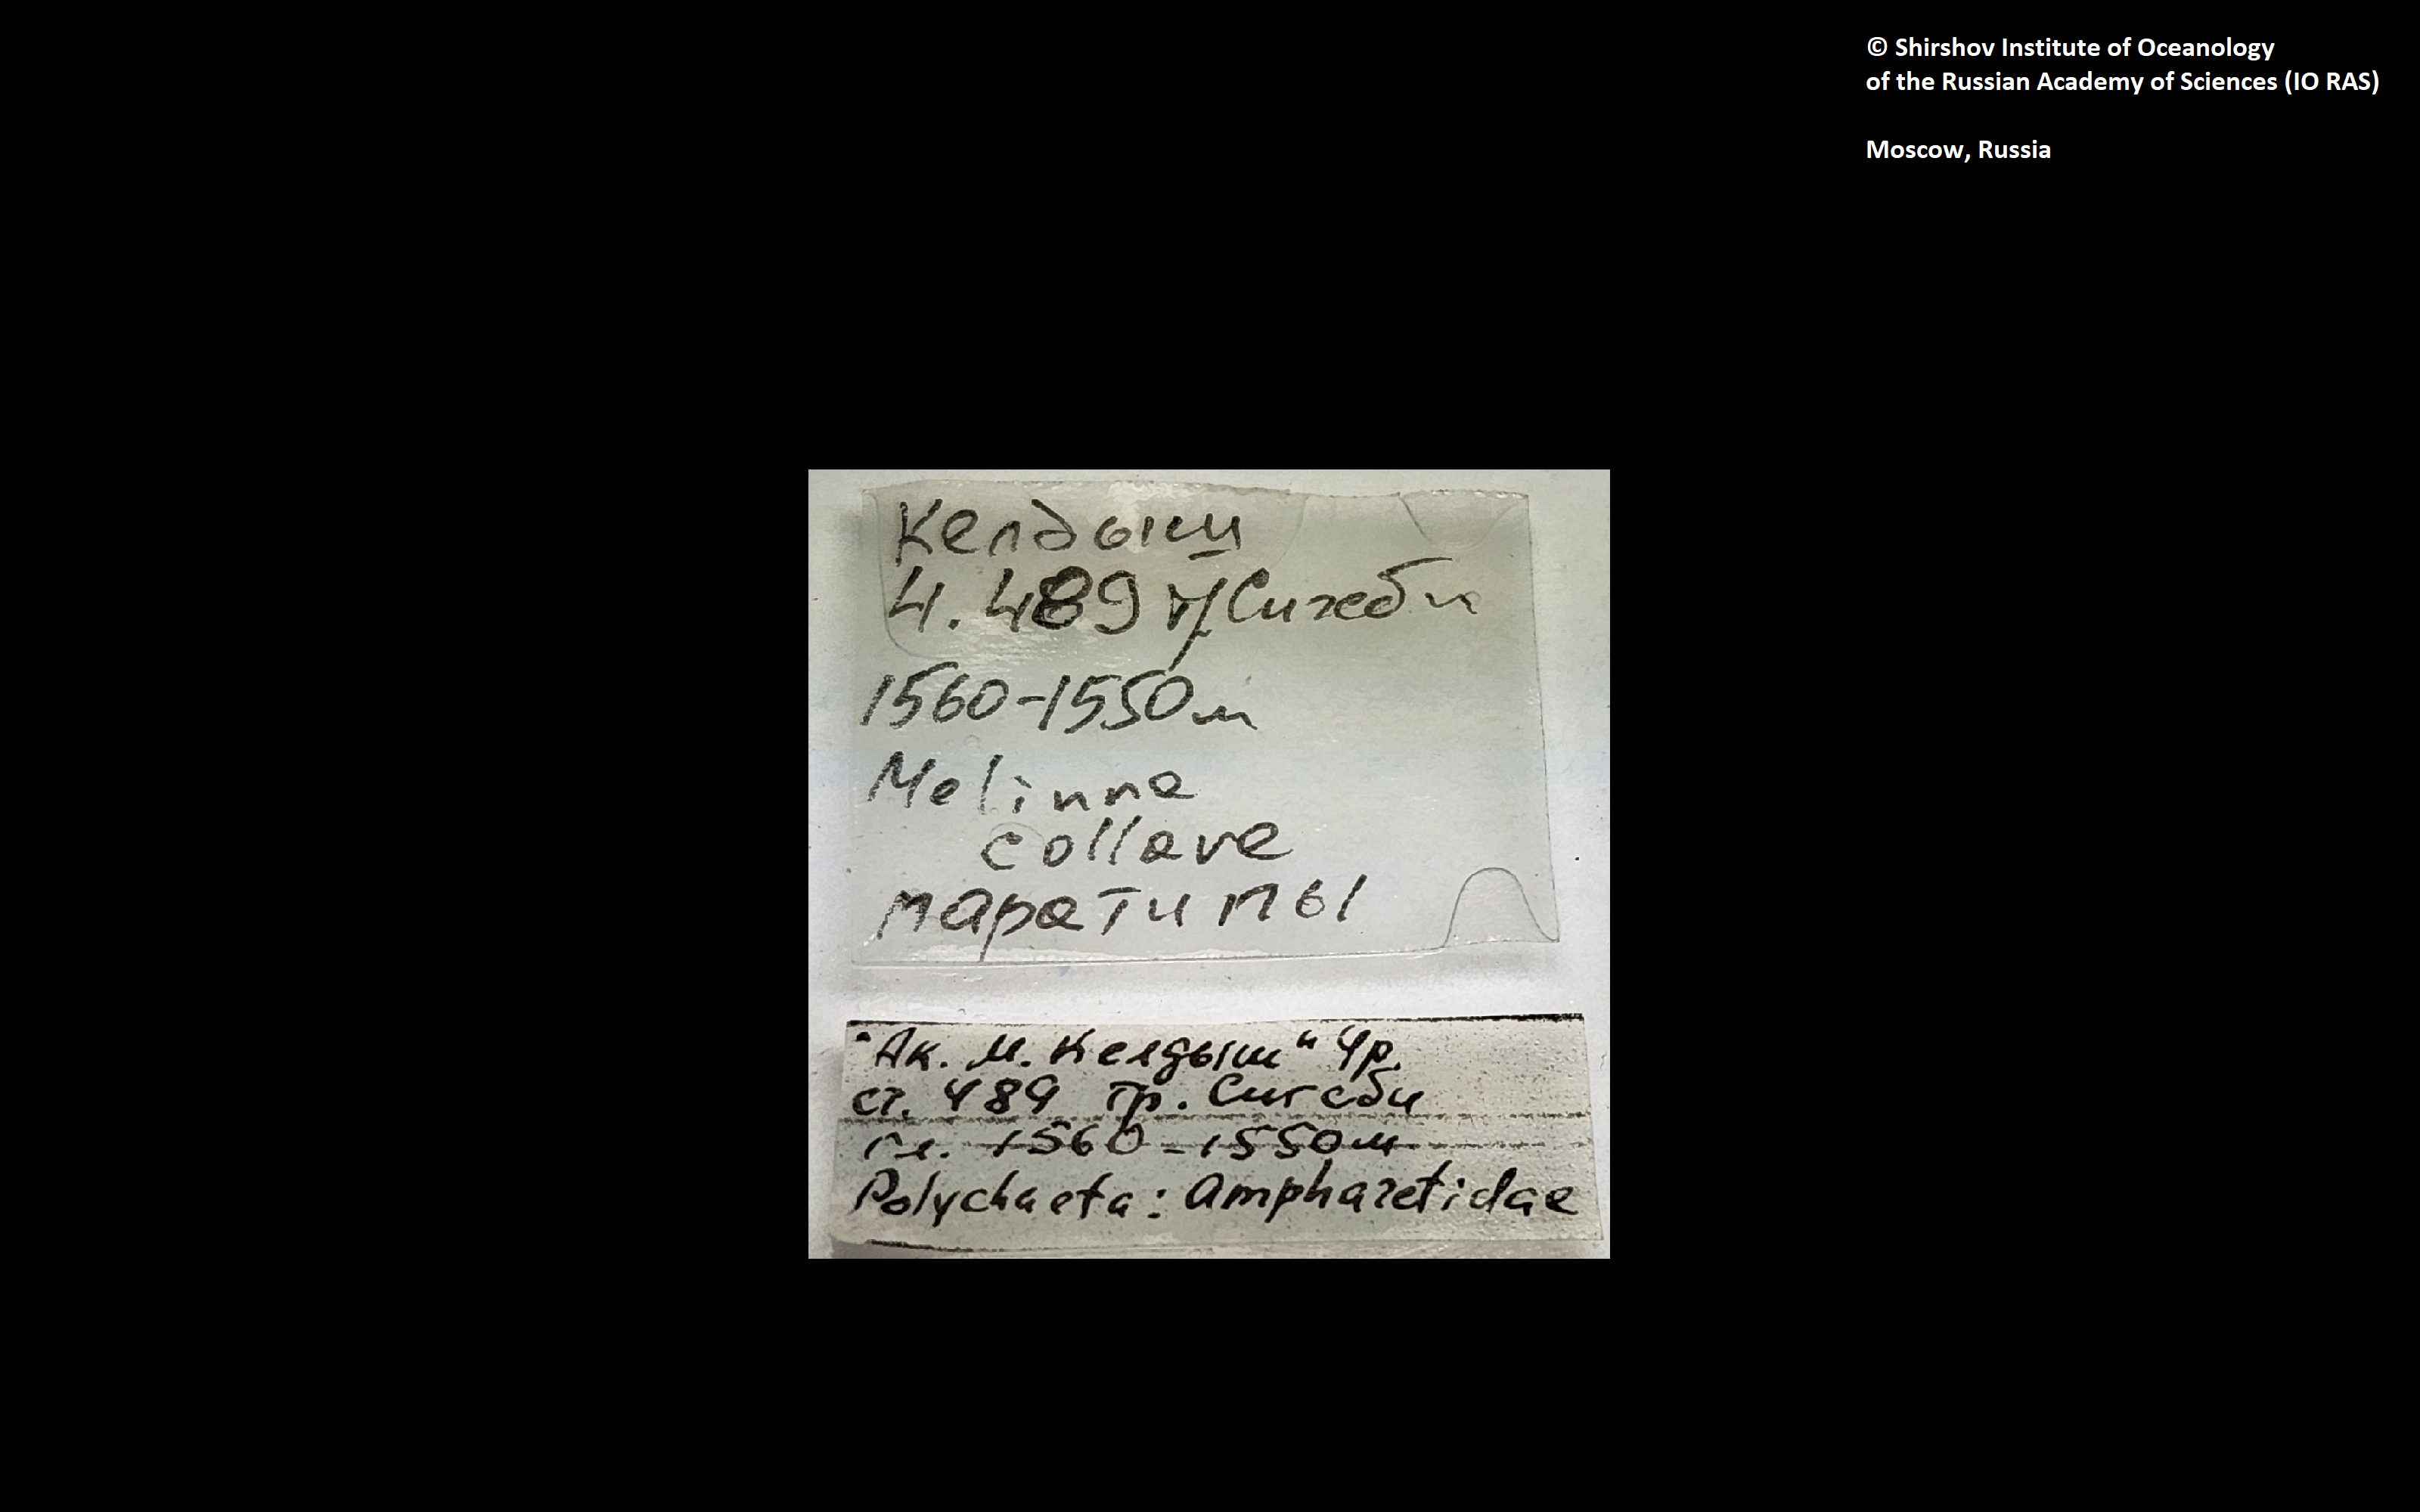 © Shirshov Institute of Oceanology
of the Russian Academy of Sciences (IO RAS)
Moscow, Russia
Келдыш
4. 489 т/Сигсби
1560-1550м
Melinna
collare
паратипы
"Ак. М. Келдыш" 4р.
ст. 489 тр. Сигсби
гл. 1560-1550м
Polychaeta: Ampharetidae